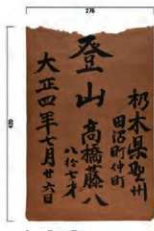 276
栃木県野州
田沼町仲町
登山 高橋藤八
八拾七才
大正四年七月廿六日